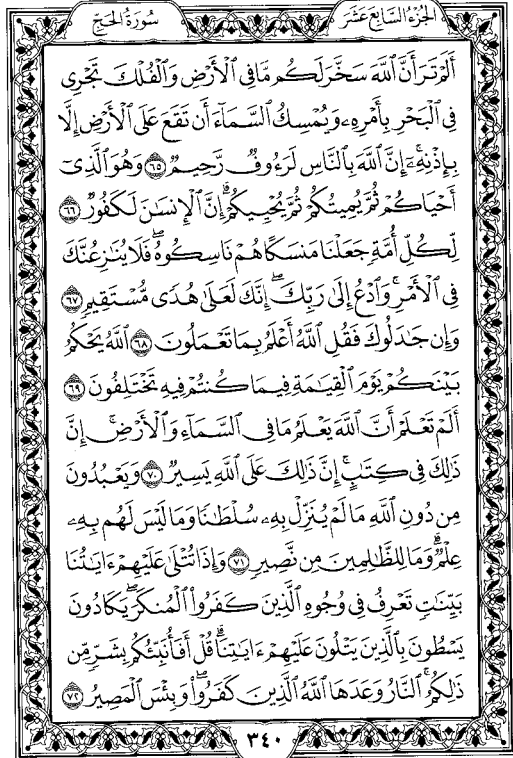 الجزء السابع عشر
سورة الحج
أَلَمْ تَرَ أَنَّ ٱللَّهَ سَخَّرَ لَكُم مَّا فِى ٱلْأَرْضِ وَٱلْفُلْكَ تَجْرِى
فِى ٱلْبَحْرِ بِأَمْرِهِۦ وَيُمْسِكُ ٱلسَّمَآءَ أَن تَقَعَ عَلَى ٱلْأَرْضِ إِلَّا
بِإِذْنِهِۦٓ ۗ إِنَّ ٱللَّهَ بِٱلنَّاسِ لَرَءُوفٌ رَّحِيمٌ ٦٥ وَهُوَ ٱلَّذِىٓ
أَحْيَاكُمْ ثُمَّ يُمِيتُكُمْ ثُمَّ يُحْيِيكُمْ ۗ إِنَّ ٱلْإِنسَٰنَ لَكَفُورٌ ٦٦
لِّكُلِّ أُمَّةٍ جَعَلْنَا مَنسَكًا هُمْ نَاسِكُوهُ ۖ فَلَا يُنَٰزِعُنَّكَ
فِى ٱلْأَمْرِ ۚ وَٱدْعُ إِلَىٰ رَبِّكَ ۖ إِنَّكَ لَعَلَىٰ هُدًى مُّسْتَقِيمٍ ٦٧
وَإِن جَٰدَلُوكَ فَقُلِ ٱللَّهُ أَعْلَمُ بِمَا تَعْمَلُونَ ٦٨ ٱللَّهُ يَحْكُمُ
بَيْنَكُمْ يَوْمَ ٱلْقِيَٰمَةِ فِيمَا كُنتُمْ فِيهِ تَخْتَلِفُونَ ٦٩
أَلَمْ تَعْلَمْ أَنَّ ٱللَّهَ يَعْلَمُ مَا فِى ٱلسَّمَآءِ وَٱلْأَرْضِ ۗ إِنَّ
ذَٰلِكَ فِى كِتَٰبٍ ۚ إِنَّ ذَٰلِكَ عَلَى ٱللَّهِ يَسِيرٌ ٧٠ وَيَعْبُدُونَ
مِن دُونِ ٱللَّهِ مَا لَمْ يُنَزِّلْ بِهِۦ سُلْطَٰنًا وَمَا لَيْسَ لَهُم بِهِۦ
عِلْمٌ ۗ وَمَا لِلظَّٰلِمِينَ مِن نَّصِيرٍ ٧١ وَإِذَا تُتْلَىٰ عَلَيْهِمْ ءَايَٰتُنَا
بَيِّنَٰتٍ تَعْرِفُ فِى وُجُوهِ ٱلَّذِينَ كَفَرُوا۟ ٱلْمُنكَرَ ۖ يَكَادُونَ
يَسْطُونَ بِٱلَّذِينَ يَتْلُونَ عَلَيْهِمْ ءَايَٰتِنَا ۗ قُلْ أَفَأُنَبِّئُكُم بِشَرٍّ مِّن
ذَٰلِكُمُ ۗ ٱلنَّارُ وَعَدَهَا ٱللَّهُ ٱلَّذِينَ كَفَرُوا۟ ۖ وَبِئْسَ ٱلْمَصِيرُ ٧٢
٣٤٠